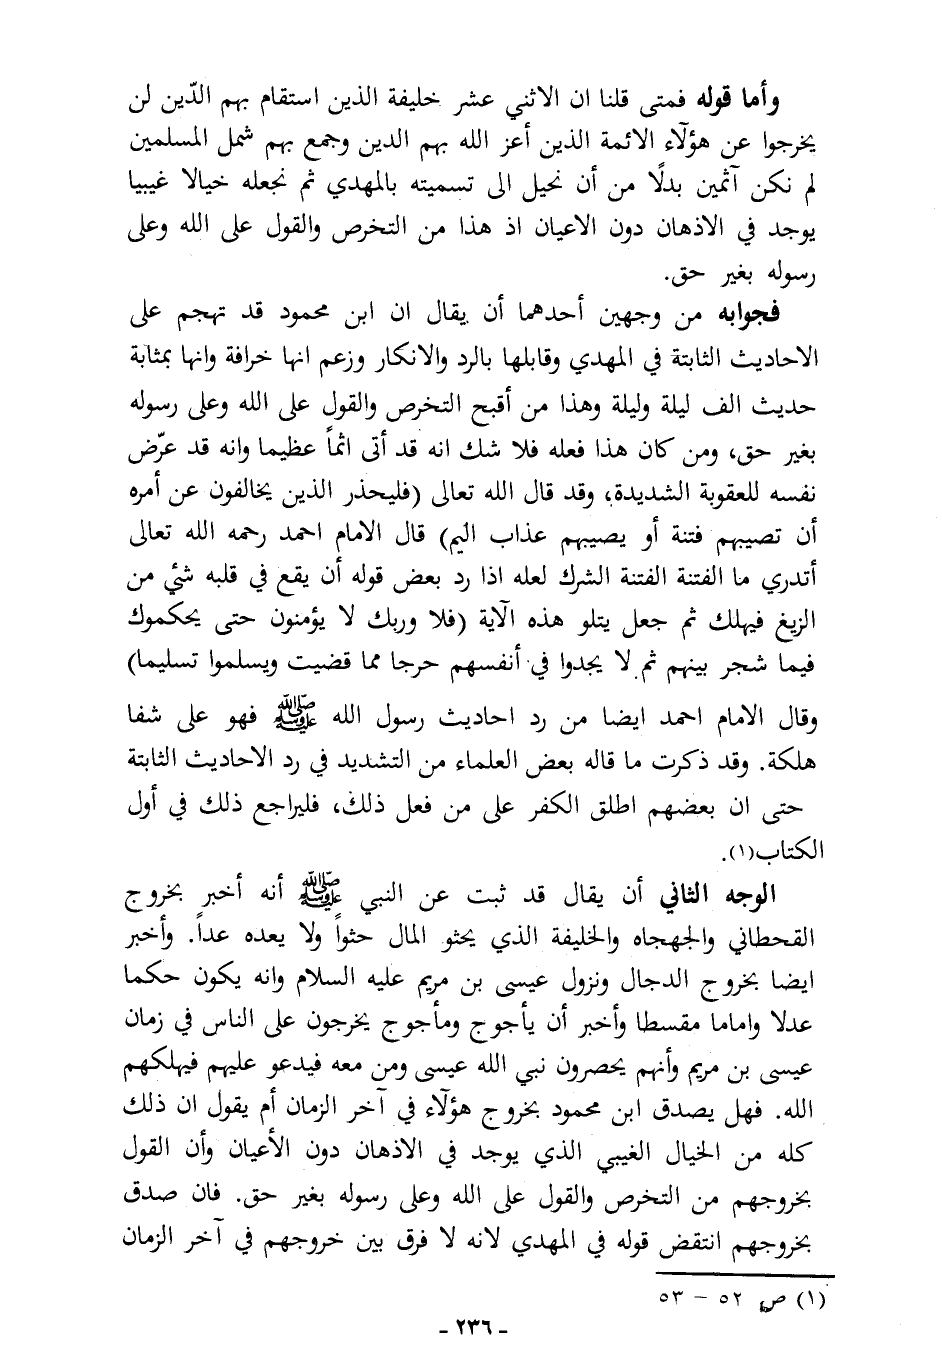 وأما قوله فمتى قلنا ان الاثني عشر خليفة الذين استقام بهم الدّين لن
يخرجوا عن هؤلآء الائمة الذين أعز الله بهم الدين وجمع بهم شمل المسلمين
لم نكن آثمين بدلًا من أن نحيل الى تسميته بالمهدي ثم نجعله خيالا غيبيا
يوجد في الاذهان دون الاعيان اذ هذا من التخرص والقول على الله وعلى
رسوله بغير حق.
فجوابه من وجهين أحدهما أن يقال ان ابن محمود قد تهجم على
الاحاديث الثابتة في المهدي وقابلها بالرد والانكار وزعم انها خرافة وانها بمثابة
حديث الف ليلة وليلة وهذا من أقبح التخرص والقول على الله وعلى رسوله
بغير حق، ومن كان هذا فعله فلا شك انه قد أتى اثماً عظيما وانه قد عرّض
نفسه للعقوبة الشديدة، وقد قال الله تعالى (فليحذر الذين يخالفون عن أمره
أن تصيبهم فتنة أو يصيبهم عذاب اليم) قال الامام احمد رحمه الله تعالى
أتدري ما الفتنة الفتنة الشرك لعله اذا رد بعض قوله أن يقع في قلبه شيٌ من
الزيغ فيهلك ثم جعل يتلو هذه الآية (فلا وربك لا يؤمنون حتى يحكموك
فيما شجر بينهم ثم لا يجدوا في أنفسهم حرجا مما قضيت ويسلموا تسليما)
وقال الامام احمد ايضا من رد احاديث رسول الله ﷺ فهو على شفا
هلكة. وقد ذكرت ما قاله بعض العلماء من التشديد في رد الاحاديث الثابتة
حتى ان بعضهم اطلق الكفر على من فعل ذلك، فليراجع ذلك في أول
الكتاب(١).
الوجه الثاني أن يقال قد ثبت عن النبي ﷺ أنه أخبر بخروج
القحطاني والجهجاه والخليفة الذي يحثو المال حثواً ولا يعده عداً. وأخبر
ايضا بخروج الدجال ونزول عيسى بن مريم عليه السلام وانه يكون حكما
عدلا واماما مقسطا وأخبر أن يأجوج ومأجوج يخرجون على الناس في زمان
عيسى بن مريم وأنهم يحصرون نبي الله عيسى ومن معه فيدعو عليهم فيهلكهم
الله. فهل يصدق ابن محمود بخروج هؤلآء في آخر الزمان أم يقول ان ذلك
كله من الخيال الغيبي الذي يوجد في الاذهان دون الأعيان وأن القول
بخروجهم من التخرص والقول على الله وعلى رسوله بغير حق. فان صدق
بخروجهم انتقض قوله في المهدي لانه لا فرق بين خروجهم في آخر الزمان
(١) ص ٥٢ – ٥٣
- ٢٣٦ -